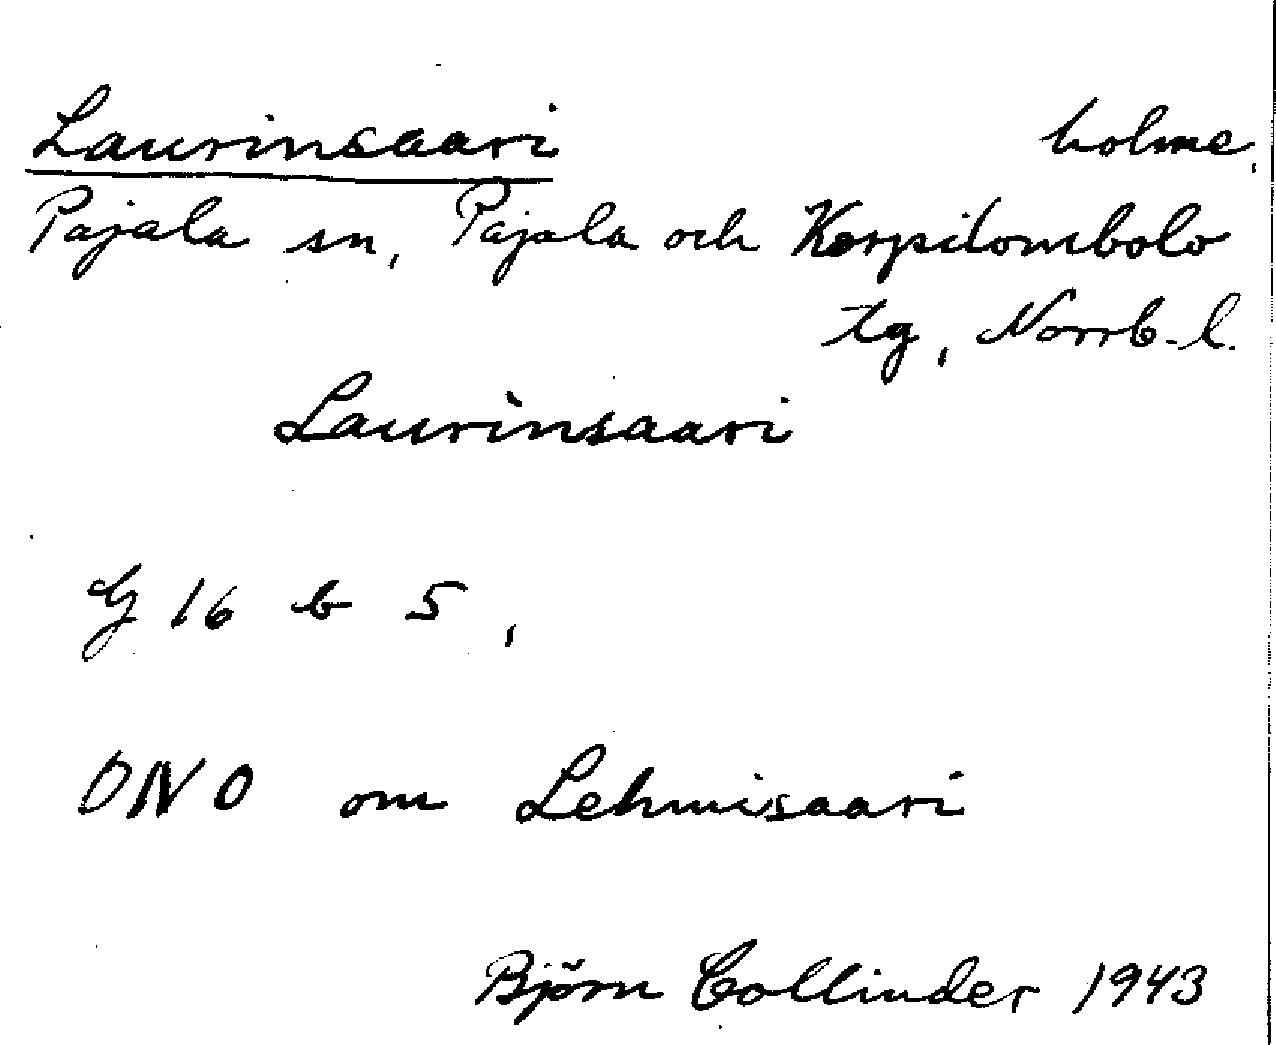 Laurinsaari holme,
Pajala sn, Pajala och Korpilombolo
tg, Norrb. l.
Laurinsaari
G 16 b 5,
ONO om Lehmisaari
Björn Collinder 1943